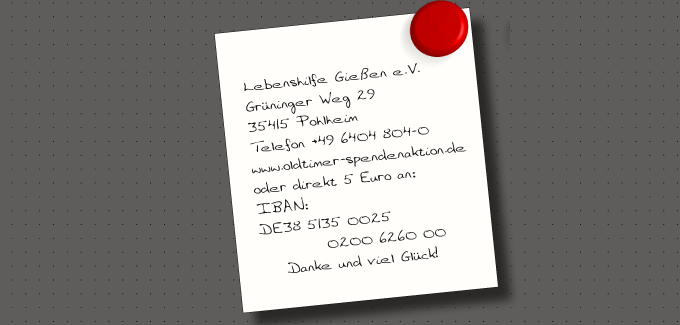 Lebenshilfe Gießen e.V.
Grüninger Weg 29
35415 Pohlheim
Telefon +49 6404 804-0
www.oldtimer-spendenaktion.de
oder direkt 5 Euro an:
IBAN:
DE38 5135 0025
0200 6260 00
Danke und viel Glück!